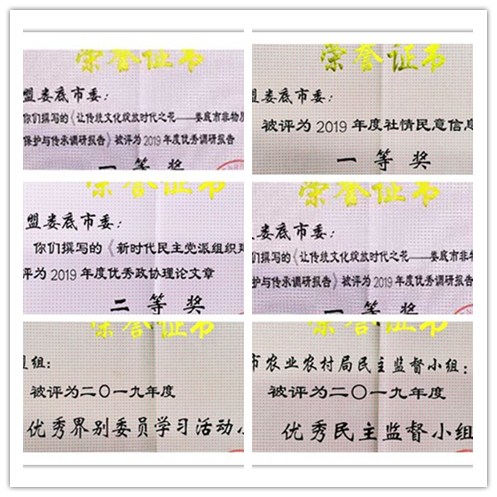 荣誉证书
盟娄底市委:
你们撰写的《让传统文化绽放时代之花——娄底市非物质
保护与传承调研报告》被评为2019年度优秀调研报告
一等奖
荣誉证书
盟娄底市委:
被评为2019年度社情民意信息
一等奖
荣誉证书
盟娄底市委:
你们撰写的《新时代民主党派组织
评为2019年度优秀政协理论文章
二等奖
荣誉证书
娄底市委:
们撰写的《让传统文化绽放时代之花——娄底市非物
护与传承调研报告》被评为2019年度优秀调研报告
一等奖
荣誉证书
组:
被评为二〇一九年度
优秀界别委员学习活动小
荣誉证书
市农业农村局民主监督小组:
被评为二〇一九年度
优秀民主监督小组